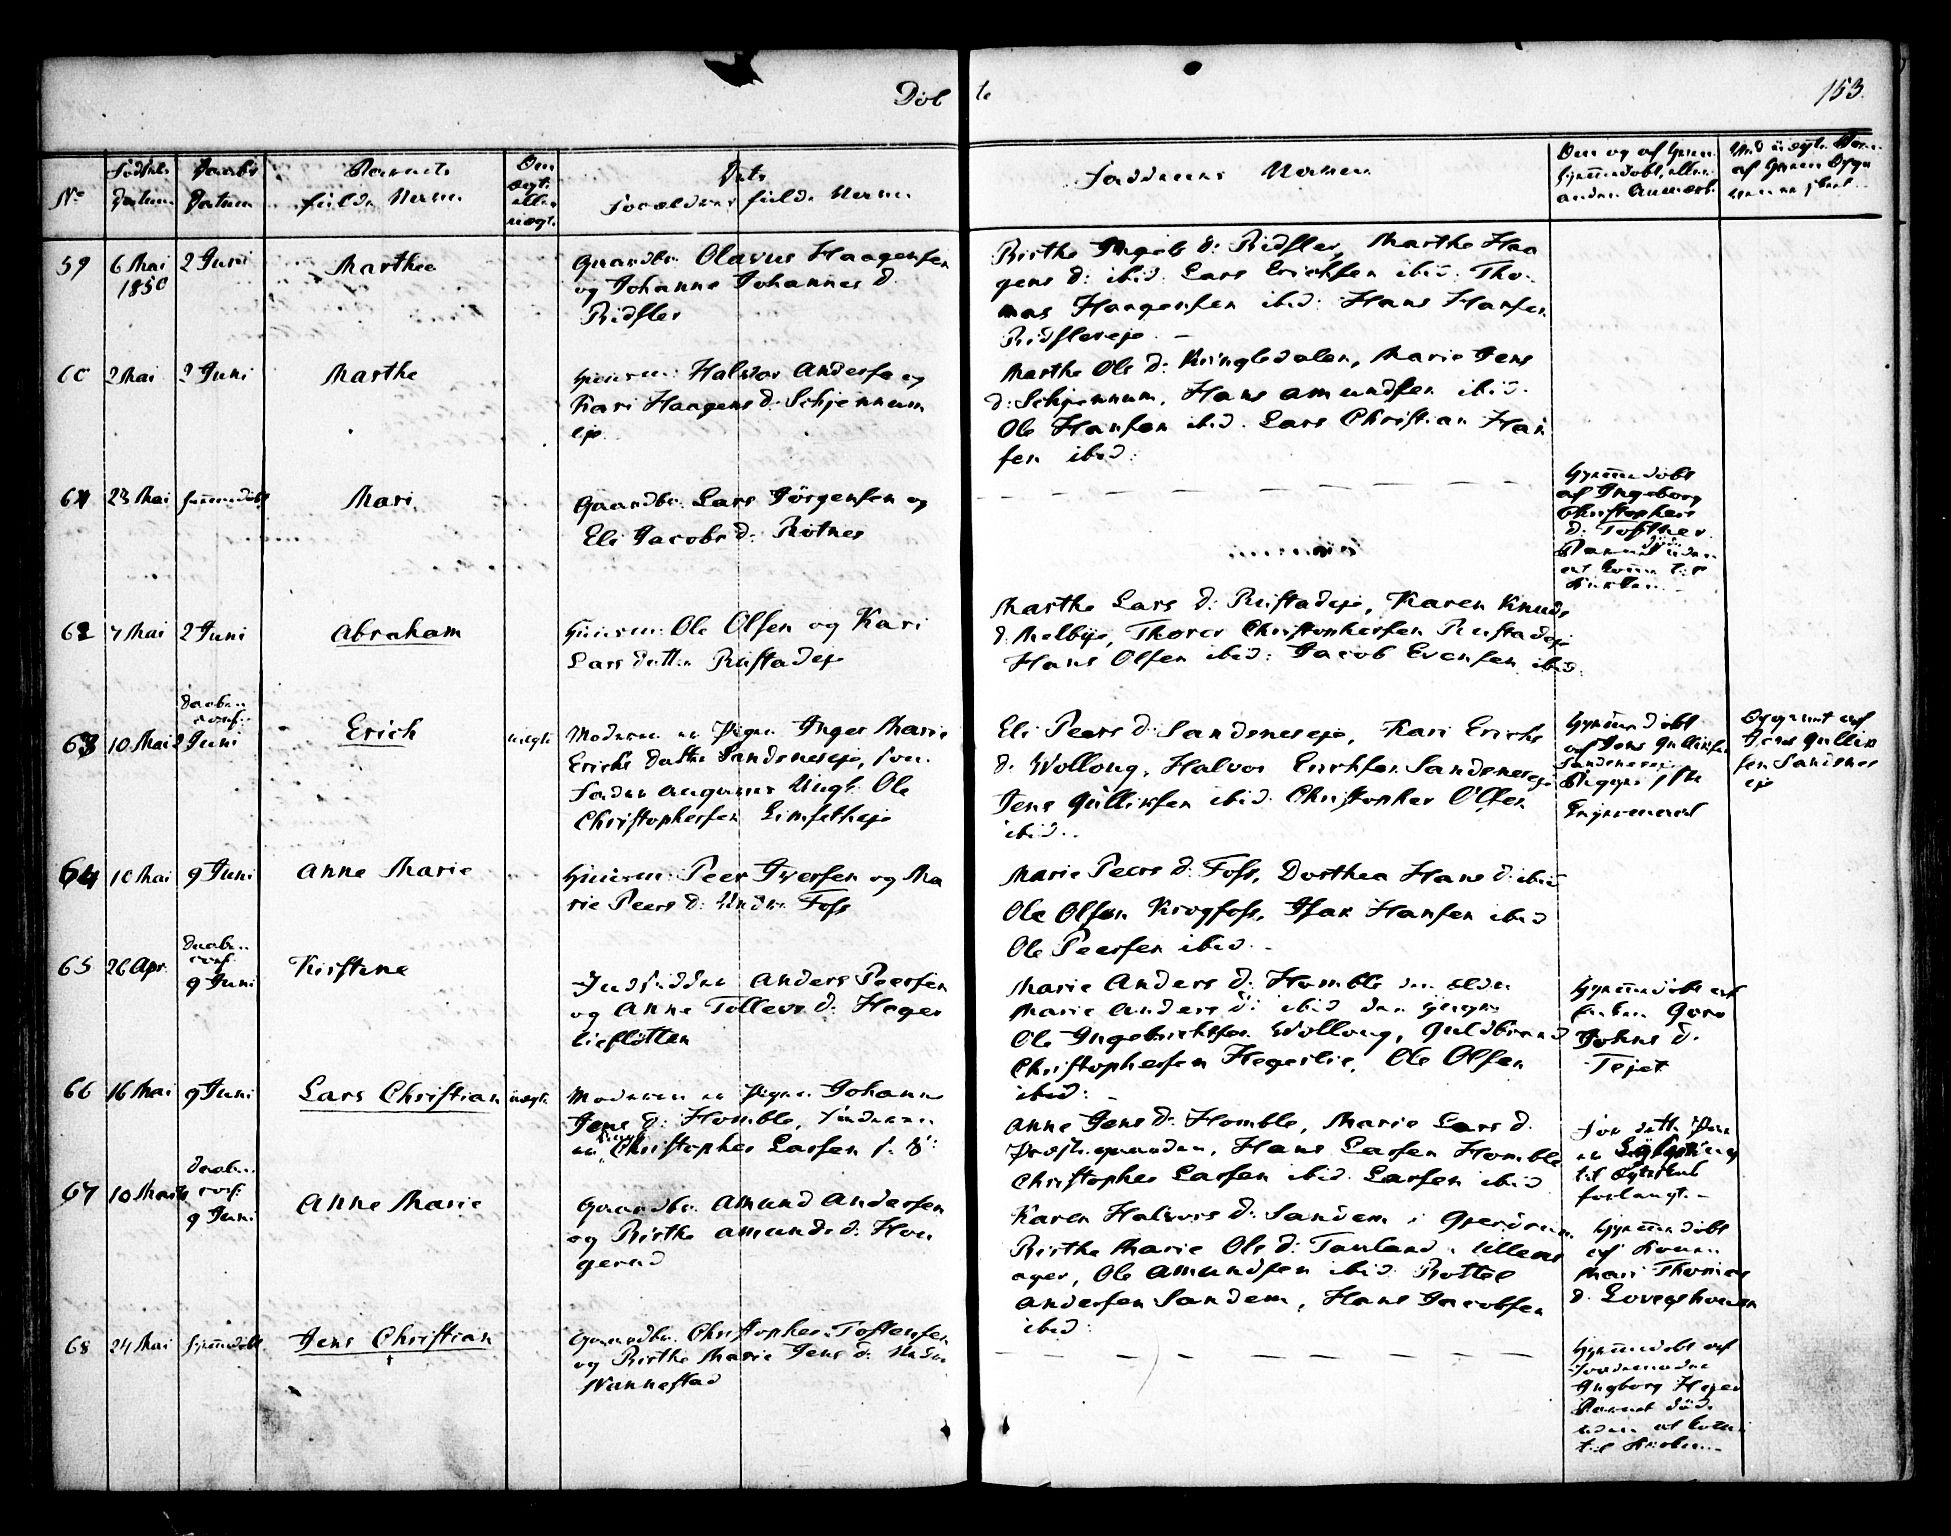 Döb te 153.
No
Fødsels Datum
Daabs Datum
Barnets fulde Navn
Om ægte eller uægte
Forældrenes fulde Navne
Faddernes Navne
59 6 Mai 1850 2 Juni Marthea
Gaardbr. Olavus Haagensen
og Johanne Johannes d.
Ridsler
Birthe Ingels d: Ridsler, Marthe Haa
gens d: ibid. Lars Erichsen ibid: Tho-
mas Haagensen ibid: Hans Hansen
Ridslereje. –
60 2 Mai 2 Juni Marthe
Huusm: Halvor Anderse og
Kari Haagens d: Schjennum
eje.
Marthe Ole d: Kringledalen, Marie Jens
d: Schjennum, Hans Amundsen ibid.
Ole Hansen ibid. Lars Christian Han
sen ibid:
61 23 Mai hjemmedöbt Mari
Gaardbr. Lars Jörgensen og
Eli Jacobs d: Rotnes
Hjemmedöbt
af Ingeborg
Christophers
d: Tofther.
Barnet döde uden
at komme til
Kirken.
62 7 Mai 2 Juni Abraham
Huusm: Ole Olsen og Kari
Lars datter Rustadeje
Marthe Lars d: Rustadeje, Karen Knuds
d: Melbyeje, Thorer Christophersen Rustadeje
Hans Olsen ibid: Jacob Evensen ibid.
63 10 Mai Daaben conf: 2 Juni Erich uægte
Moderen er Pigen Inger Marie
Erichs datter Sandsneseje,
Fader angives Ungk: Ole
Christophersen Limsetheje
Eli Peers d: Sandsneseje, Kari Erichs
d: Wollaug, Halvor Erichsen Sandsneseje
Jens Gulliksen ibid. Christopher Olsen
ibid.
Hjemmedöbt
af Jens Gulliksen
Sandsneseje
Opgivet af
Jens Gullik
sen Sandsnes
eje
64 10 Mai 9 Juni Anne Marie
Huusm: Peer Iversen og Ma
rie Peers d: Undre Foss
Marie Peers d: Foss, Dorthea Hans d: ibid
Ole Olsen Krogfoss, Isak Hansen ibid
Ole Peersen ibid. –
65 26 Apr. Daaben conf. 9 Juni Kirstine
Inderster Anders Peersen
og Anne Tollevs d: Heger
lieflötten
Marie Anders d: Homble den ældre
Marie Anders d: ibid den yngre
Ole Ingebrichtsen Wollaug, Guldbrand
Christophersen Hegerlie, Ole Olsen
ibid: –
Hjemmedöbt af
Enken Goro
Johns d.
Tejet
66 16 Mai 9 Juni Lars Christian uægte
Moderen er Pigen Johanne
Jens d: Homble, Faderen
er Christopher Larsen
Anne Jens d: Homble, Marie Lars d.
Præstegaarden, Hans Larsen Homble
Christopher Larsen ibid. Larsen ibid
For dette Par
er Lysning
til Ægteskab
forlangt. –
67 10 Marts Daaben conf: 9 Juni Anne Marie
Gaardbr. Amund Andersen
og Birthe Amunds d: Hou
gerud
Karen Halvors d: Sandem i Gjerdrum
Birthe Marie Ols d: Tauland i Ullens
ager, Ole Amundsen ibid. Rottel
Andersen Sandem, Hans Jacobsen
ibid:
Hjemmedöbt
af Konen
Mari Thomas
d. Lovegshouen
68 24 Mai hjemmedöbt Jens Christian †
Gaardbr. Christopher Toftensen
og Birthe Marie Jens d: Nedre
Wannestad
Hjemmedöbt af
Jordemoder
Ingborg Heger
Barnet döde
uden at komme
til Kirken. –